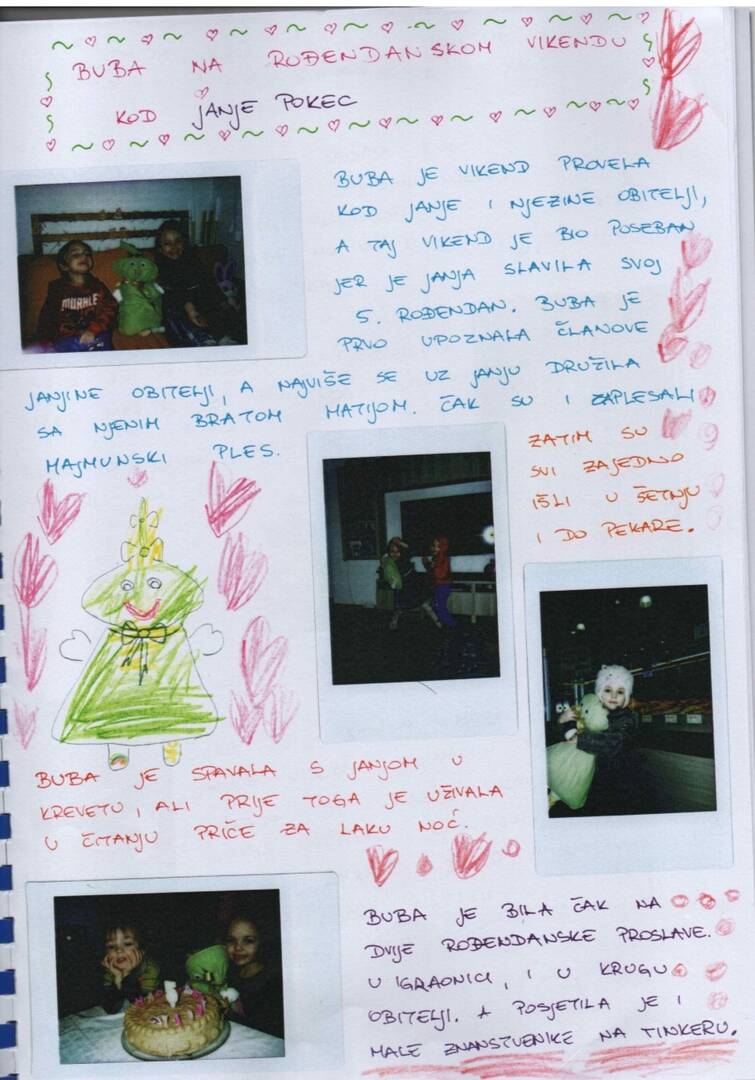 BUBA NA ROĐENDANSKOM VIKENDU
KOD JANJE POKEC
BUBA JE VIKEND PROVELA
KOD JANJE I NJEZINE OBITELJI,
A TAJ VIKEND JE BIO POSEBAN
JER JE JANJA SLAVILA SVOJ
5. ROĐENDAN. BUBA JE
PRVO UPOZNALA ČLANOVE
JANJINE OBITELJI, A NAJVIŠE SE UZ JANJU DRUŽILA
SA NJENIM BRATOM MATIJOM. ČAK SU I ZAPLESALI
MAJMUNSKI PLES.
ZATIM SU
SVI ZAJEDNO
IŠLI U ŠETNJU
I DO PEKARE.
BUBA JE SPAVALA S JANJOM U
KREVETU, ALI PRIJE TOGA JE UŽIVALA
U ČITANJU PRIČE ZA LAKU NOĆ.
BUBA JE BILA ČAK NA
DVIJE ROĐENDANSKE PROSLAVE.
U IGRAONICI, I U KRUGU
OBITELJI. A POSJETILA JE I
MALE ZNANSTVENIKE NA TINKERU.